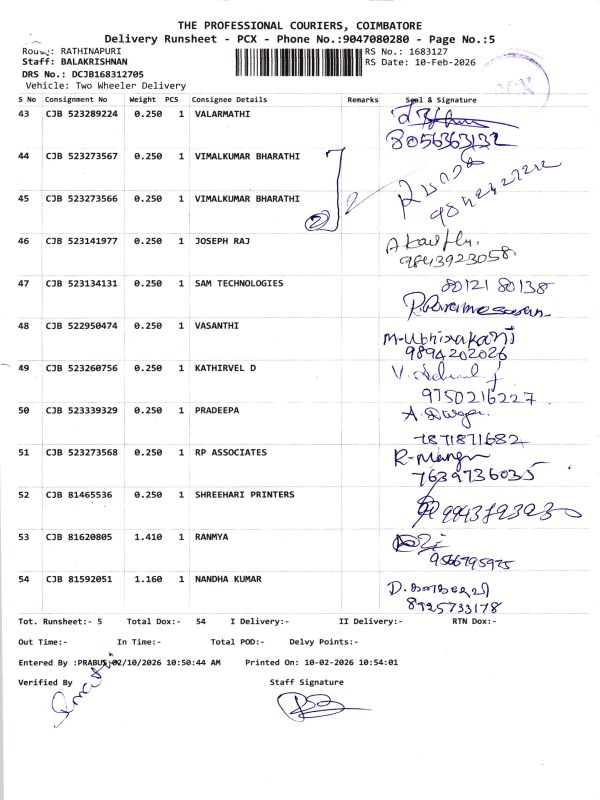 THE PROFESSIONAL COURIERS, COIMBATORE
Delivery Runsheet - PCX - Phone No.:9047080280 - Page No.:5
Route: RATHINAPURI RS No.: 1683127
Staff: BALAKRISHNAN RS Date: 10-Feb-2026
DRS No.: DCJB168312705
Vehicle: Two Wheeler Delivery
S No Consignment No Weight PCS Consignee Details Remarks Seal & Signature
43 CJB 523289224 0.250 1 VALARMATHI
8056363132
44 CJB 523273567 0.250 1 VIMALKUMAR BHARATHI
45 CJB 523273566 0.250 1 VIMALKUMAR BHARATHI
46 CJB 523141977 0.250 1 JOSEPH RAJ
9843923058
47 CJB 523134131 0.250 1 SAM TECHNOLOGIES 80121 80138
48 CJB 522950474 0.250 1 VASANTHI
9894202026
49 CJB 523260756 0.250 1 KATHIRVEL D
9750216227
50 CJB 523339329 0.250 1 PRADEEPA
7871871682
51 CJB 523273568 0.250 1 RP ASSOCIATES
7639736035
52 CJB 81465536 0.250 1 SHREEHARI PRINTERS
53 CJB 81620805 1.410 1 RANMYA
9566795975
54 CJB 81592051 1.160 1 NANDHA KUMAR
8925733178
Tot. Runsheet:- 5 Total Dox:- 54 I Delivery:- II Delivery:- RTN Dox:-
Out Time:- In Time:- Total POD:- Delvy Points:-
Entered By :PRABUS,02/10/2026 10:50:44 AM Printed On: 10-02-2026 10:54:01
Verified By Staff Signature